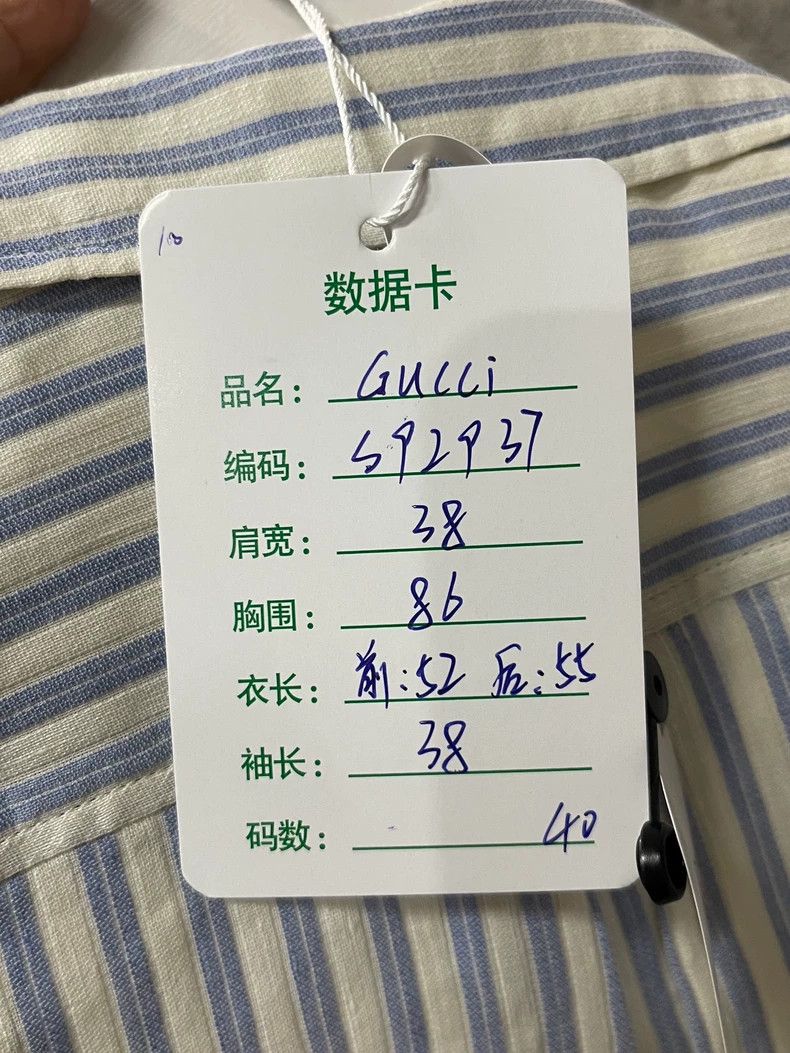 100
数据卡
品名: Gucci
编码: 592937
肩宽: 38
胸围: 86
衣长: 前:52 后:55
袖长: 38
码数: 40